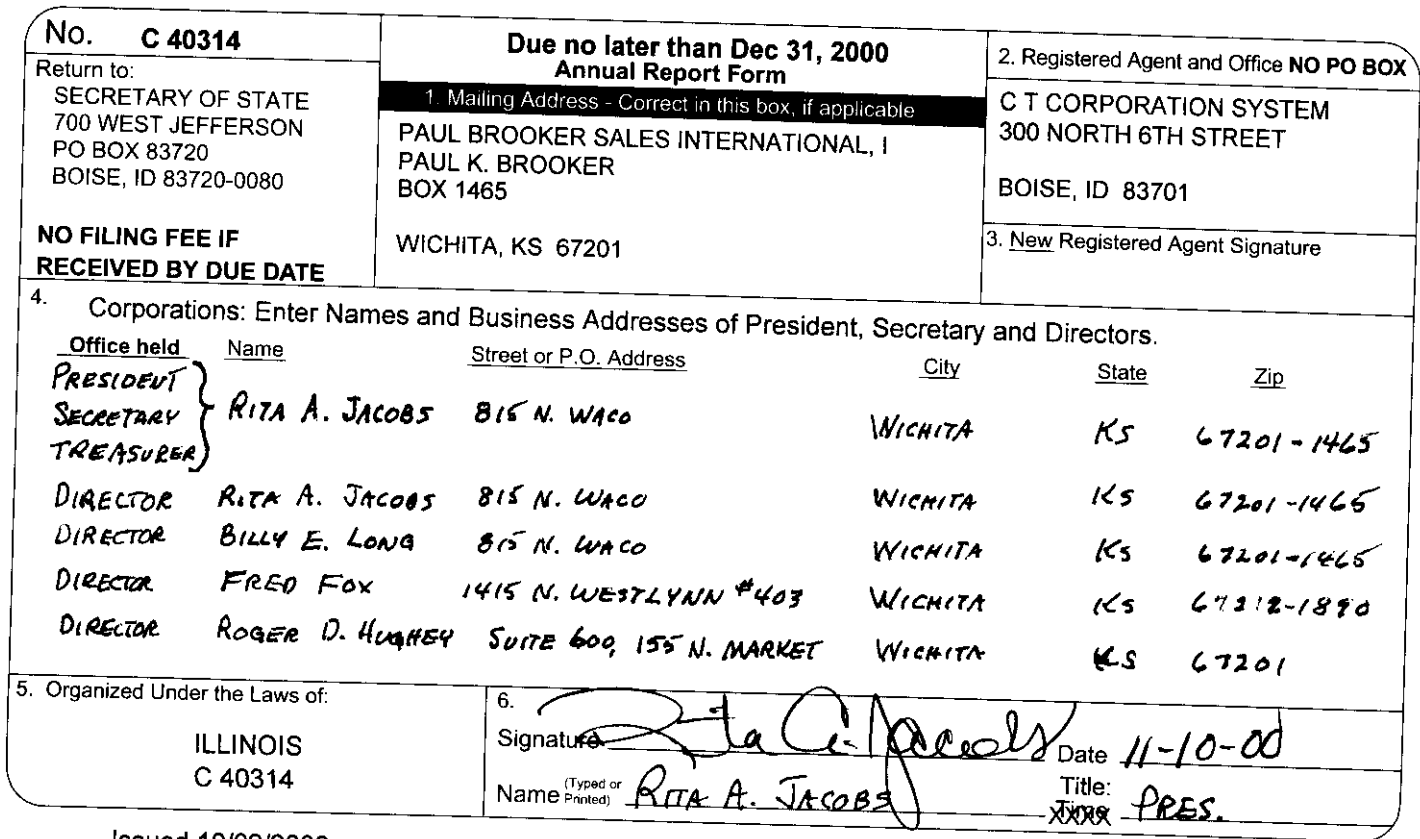 No. C 40314
Return to:
SECRETARY OF STATE
700 WEST JEFFERSON
PO BOX 83720
BOISE, ID 83720-0080
NO FILING FEE IF
RECEIVED BY DUE DATE
Due no later than Dec 31, 2000
Annual Report Form
1. Mailing Address - Correct in this box, if applicable
PAUL BROOKER SALES INTERNATIONAL, I
PAUL K. BROOKER
BOX 1465
WICHITA, KS 67201
2. Registered Agent and Office NO PO BOX
C T CORPORATION SYSTEM
300 NORTH 6TH STREET
BOISE, ID 83701
3. New Registered Agent Signature
4. Corporations: Enter Names and Business Addresses of President, Secretary and Directors.
Office held Name Street or P.O. Address City State Zip
PRESIDENT
SECRETARY RITA A. JACOBS 815 N. WACO WICHITA KS 67201-1465
TREASURER
DIRECTOR RITA A. JACOBS 815 N. WACO WICHITA KS 67201-1465
DIRECTOR BILLY E. LONG 815 N. WACO WICHITA KS 67201-1465
DIRECTOR FRED FOX 1415 N. WESTLYNN #403 WICHITA KS 67212-1890
DIRECTOR ROGER D. HUGHEY SUITE 600, 155 N. MARKET WICHITA KS 67201
5. Organized Under the Laws of:
ILLINOIS
C 40314
6.
Signature Rita A. Jacobs Date 11-10-00
Name (Typed or Printed) RITA A. JACOBS Title: PRES.